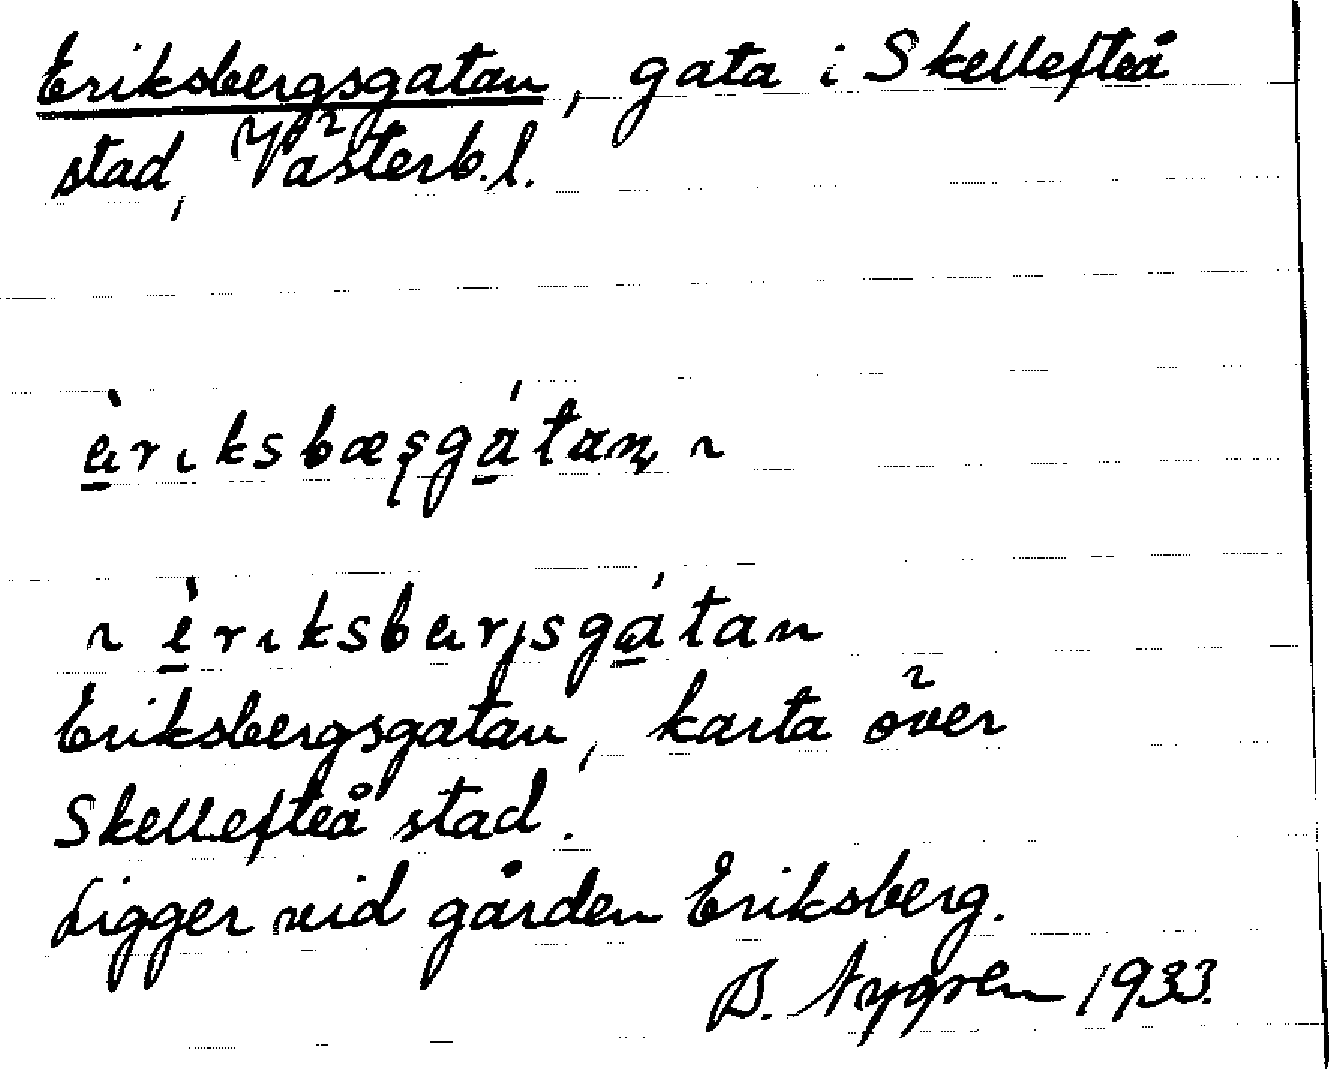 Eriksbergsgatan, gata i Skellefteå
stad, Västerb.l.
èrıksbæşgátaɳ ~
~ èrıksbærjsgátan
Eriksbergsgatan, karta över
Skellefteå stad.
Ligger vid gården Eriksberg.
B. Nygren 1933.